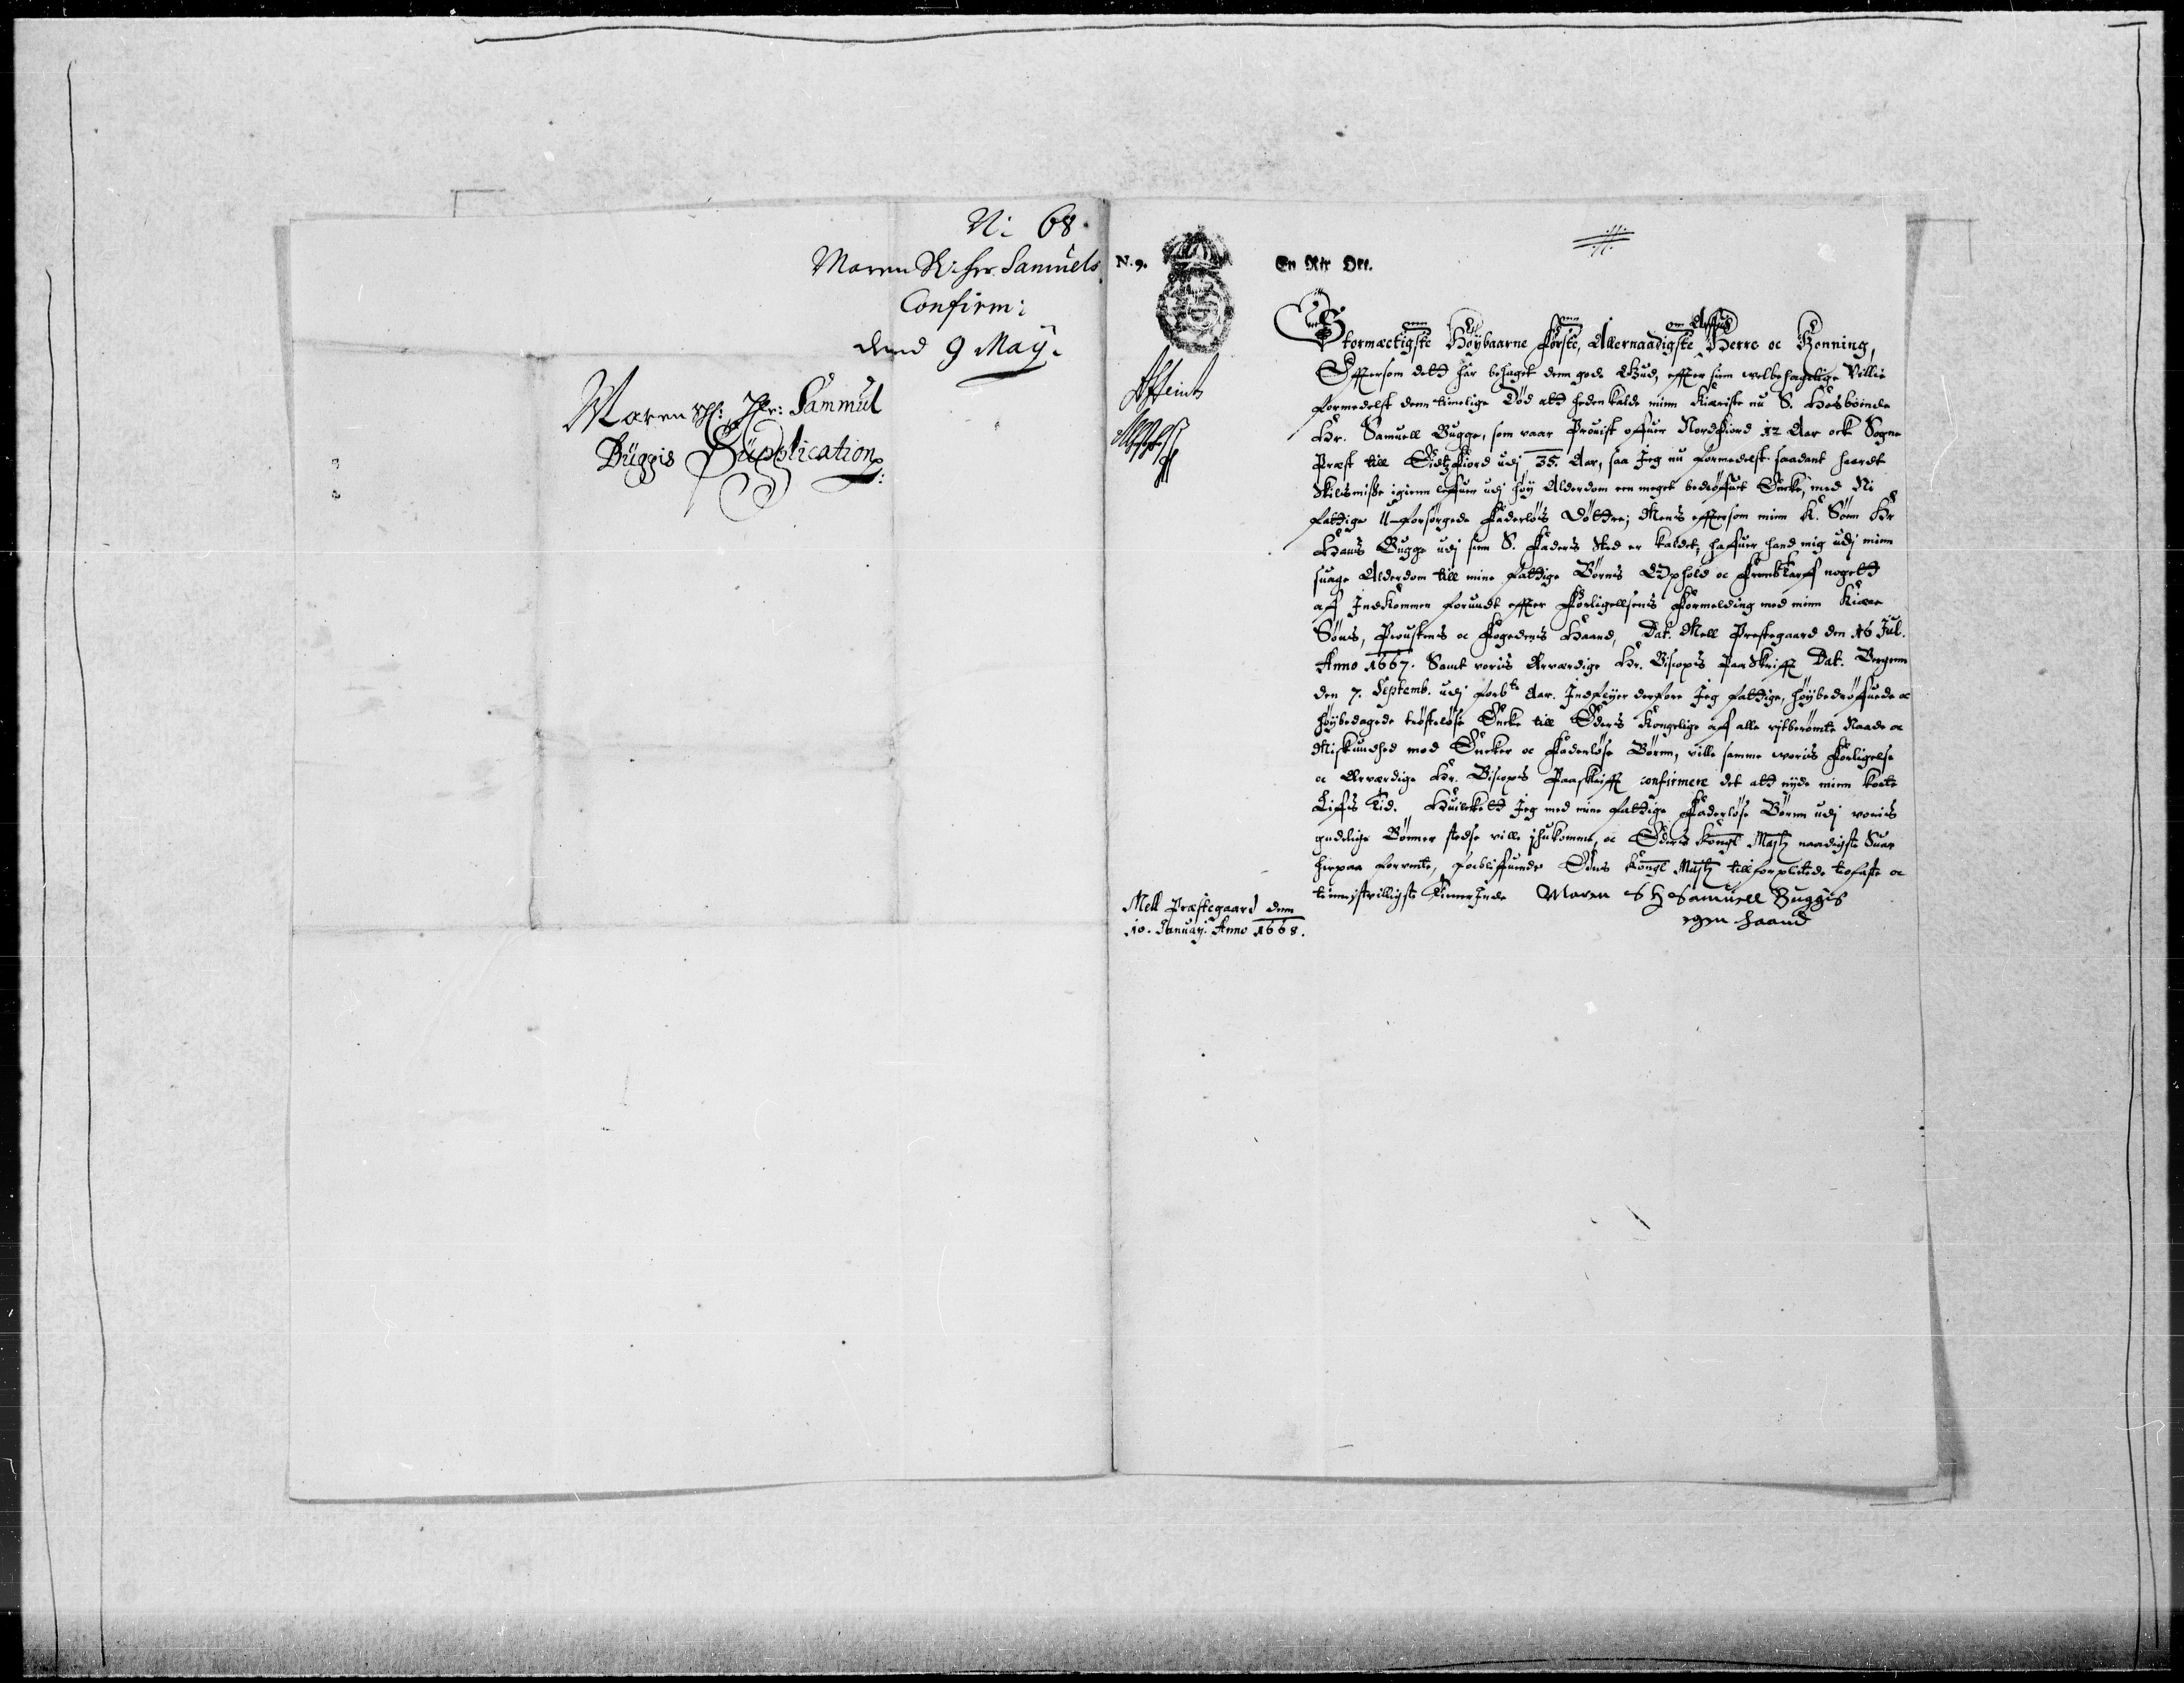 N: 68.
Maren S: Hr. Samuels
Confirm:
dend 9 Maÿ.
Maren Sl: Hr: Sammul
Büggis Supplication
N. 9.
En Rir Ort.
Stormectigste Høÿbaarne Første, Allernaadigste Arffue Herre oc Konning,
Effersom dett har behaget denn gode Gud, effter sinn velbehagelige Villie
formedelst denn timelige Død att heden kalde minn Kieriste nu S. Hosbonde
Hr. Samuell Bugge, som vaar Prouist offuer Nordfiord 12 Aar ock Sogne
Præst till Eidtzfiord udj 35. Aar, saa Jeg nu formedelst saadant haardt
Skilsmisse igienn leffuer udj høÿ Alderdom een meget bedrøffuet Encke, med Ni
fattige U-forsørgede Faderløs Døttre; Mens effersom minn K. Sønn Hr
Hans Bugge udj sinn S. Faders Sted er kaldet, haffuer hand mig udj minn
suage Alderdom till mine fattige Børns Ophold oc Fremtarff nogett
aff Indkommen forundt effter Forligellsens Formelding med minn Kiære
Søns, Proustens oc Fogedens Haand, Dat. Mell Prestegaard den 16 Jul.
Anno 1667. Samt voris Ærværdige Hr. Biscops Paaskrifft Dat. Bergenn
den 7. Septemb. udj forbte Aar. Indflyer derfore Jeg fattige, høÿbedrøffuede oc
høÿbedagede trøstesløse Encke till Eders Kongelige aff alle vitberømte Naade oc
Miskundhed mod Encker oc Faderløse Børnn, ville samme voris Forligelse
oc Ærværdige Hr. Biscops Paaskrifft confirmere det att nÿde minn korte
Liffs Tid. Huilckett Jeg med mine fattige Faderløse Børnn udj voris
gudelige Bønner stedse ville ihukomme, oc Eders Kongl Maÿtz naadigste Suar
herpaa forvente, forbliffuende Eders Kongl Maÿtz tillforplictede trofaste oc
tienistvilligste Tienerinde Maren S H Samuell Buggis
egen haand
Mell Præstegaard denn
10. Januarj. Anno 1668.